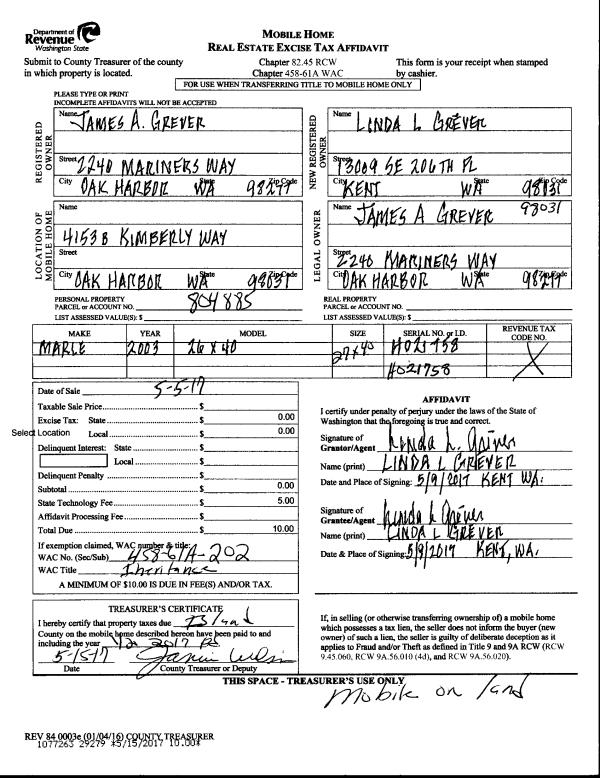 Department of
Revenue
Washington State
MOBILE HOME
REAL ESTATE EXCISE TAX AFFIDAVIT
Submit to County Treasurer of the county
in which property is located.
Chapter 82.45 RCW
Chapter 458-61A WAC
This form is your receipt when stamped
by cashier.
FOR USE WHEN TRANSFERRING TITLE TO MOBILE HOME ONLY
PLEASE TYPE OR PRINT
INCOMPLETE AFFIDAVITS WILL NOT BE ACCEPTED
REGISTERED OWNER
Name JAMES A. GREVER
Street 2240 MARINERS WAY
City OAK HARBOR State WA Zip Code 98277
NEW REGISTERED OWNER
Name LINDA L GREVER
Street 13009 SE 206TH PL
City KENT State WA Zip Code 98131
98031
LOCATION OF MOBILE HOME
Name
4153B KIMBERLY WAY
Street
City OAK HARBOR State WA Zip Code 98031
LEGAL OWNER
Name JAMES A GREVER
Street 2240 MARINERS WAY
City OAK HARBOR State WA Zip Code 98277
PERSONAL PROPERTY
PARCEL or ACCOUNT NO. 804885
LIST ASSESSED VALUE(S): $
REAL PROPERTY
PARCEL or ACCOUNT NO.
LIST ASSESSED VALUE(S): $
MAKE YEAR MODEL SIZE SERIAL NO. or I.D. REVENUE TAX CODE NO.
MARLE 2003 26 X 40 27 x 40 H021758
H021758
Date of Sale 5-5-17
Taxable Sale Price $
Excise Tax: State $ 0.00
Select Location Local $ 0.00
Delinquent Interest: State $
Local $
Delinquent Penalty $
Subtotal $ 0.00
State Technology Fee $ 5.00
Affidavit Processing Fee $
Total Due $ 10.00
If exemption claimed, WAC number & title:
WAC No. (Sec/Sub) 458-61A-202
WAC Title Inheritance
A MINIMUM OF $10.00 IS DUE IN FEE(S) AND/OR TAX.
AFFIDAVIT
I certify under penalty of perjury under the laws of the State of
Washington that the foregoing is true and correct.
Signature of
Grantor/Agent Linda L. Grever
Name (print) LINDA L GREVER
Date and Place of Signing: 5/9/2017 KENT WA.
Signature of
Grantee/Agent Linda L Grever
Name (print) LINDA L GREVER
Date & Place of Signing: 5/9/2017 KENT, WA.
TREASURER'S CERTIFICATE
I hereby certify that property taxes due
County on the mobile home described hereon have been paid to and
including the year 2017
5-15-17
Date County Treasurer or Deputy
If, in selling (or otherwise transferring ownership of) a mobile home
which possesses a tax lien, the seller does not inform the buyer (new
owner) of such a lien, the seller is guilty of deliberate deception as it
applies to Fraud and/or Theft as defined in Title 9 and 9A RCW (RCW
9.45.060, RCW 9A.56.010 (4d), and RCW 9A.56.020).
THIS SPACE - TREASURER'S USE ONLY
Mobile on land
REV 84 0003e (01/04/16) COUNTY TREASURER
1077263 29279 *5/15/2017 10.00*